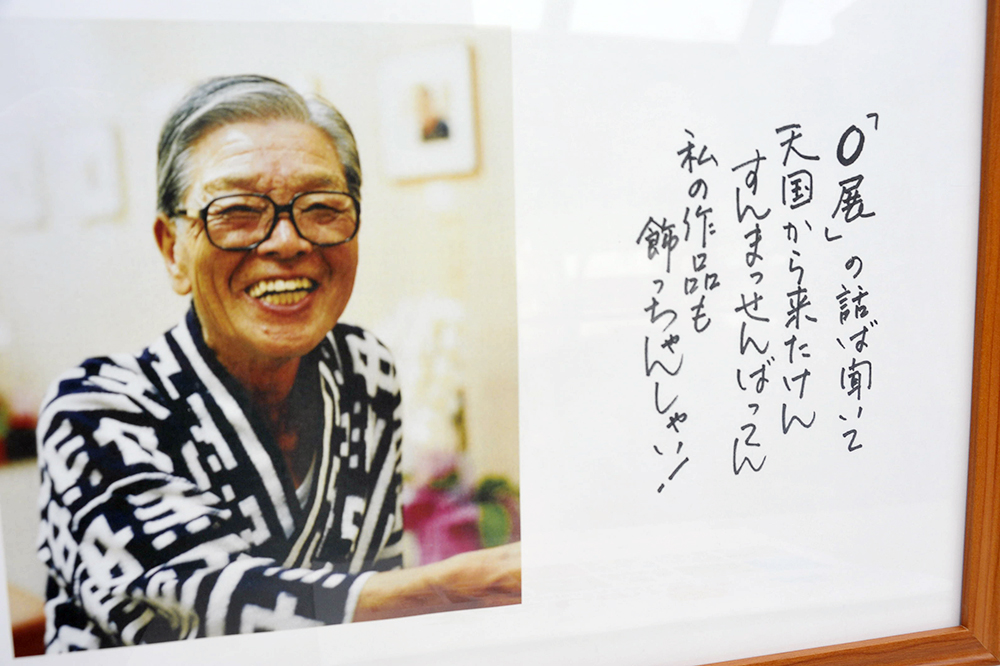 「O展」の話ば聞いて
天国から来たけん
すんまっせんばってん
私の作品も
飾っちゃんしゃい!